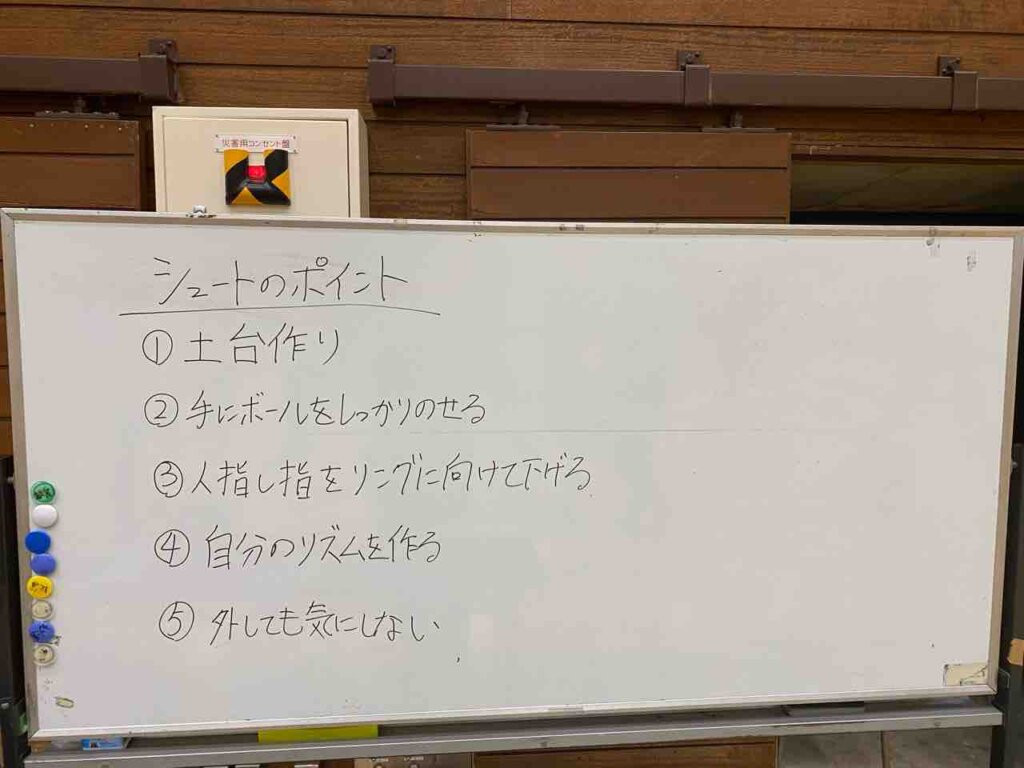 災害用コンセント盤
シュートのポイント
①土台作り
②手にボールをしっかりのせる
③人指し指をリングに向けて下げる
④自分のリズムを作る
⑤外しても気にしない